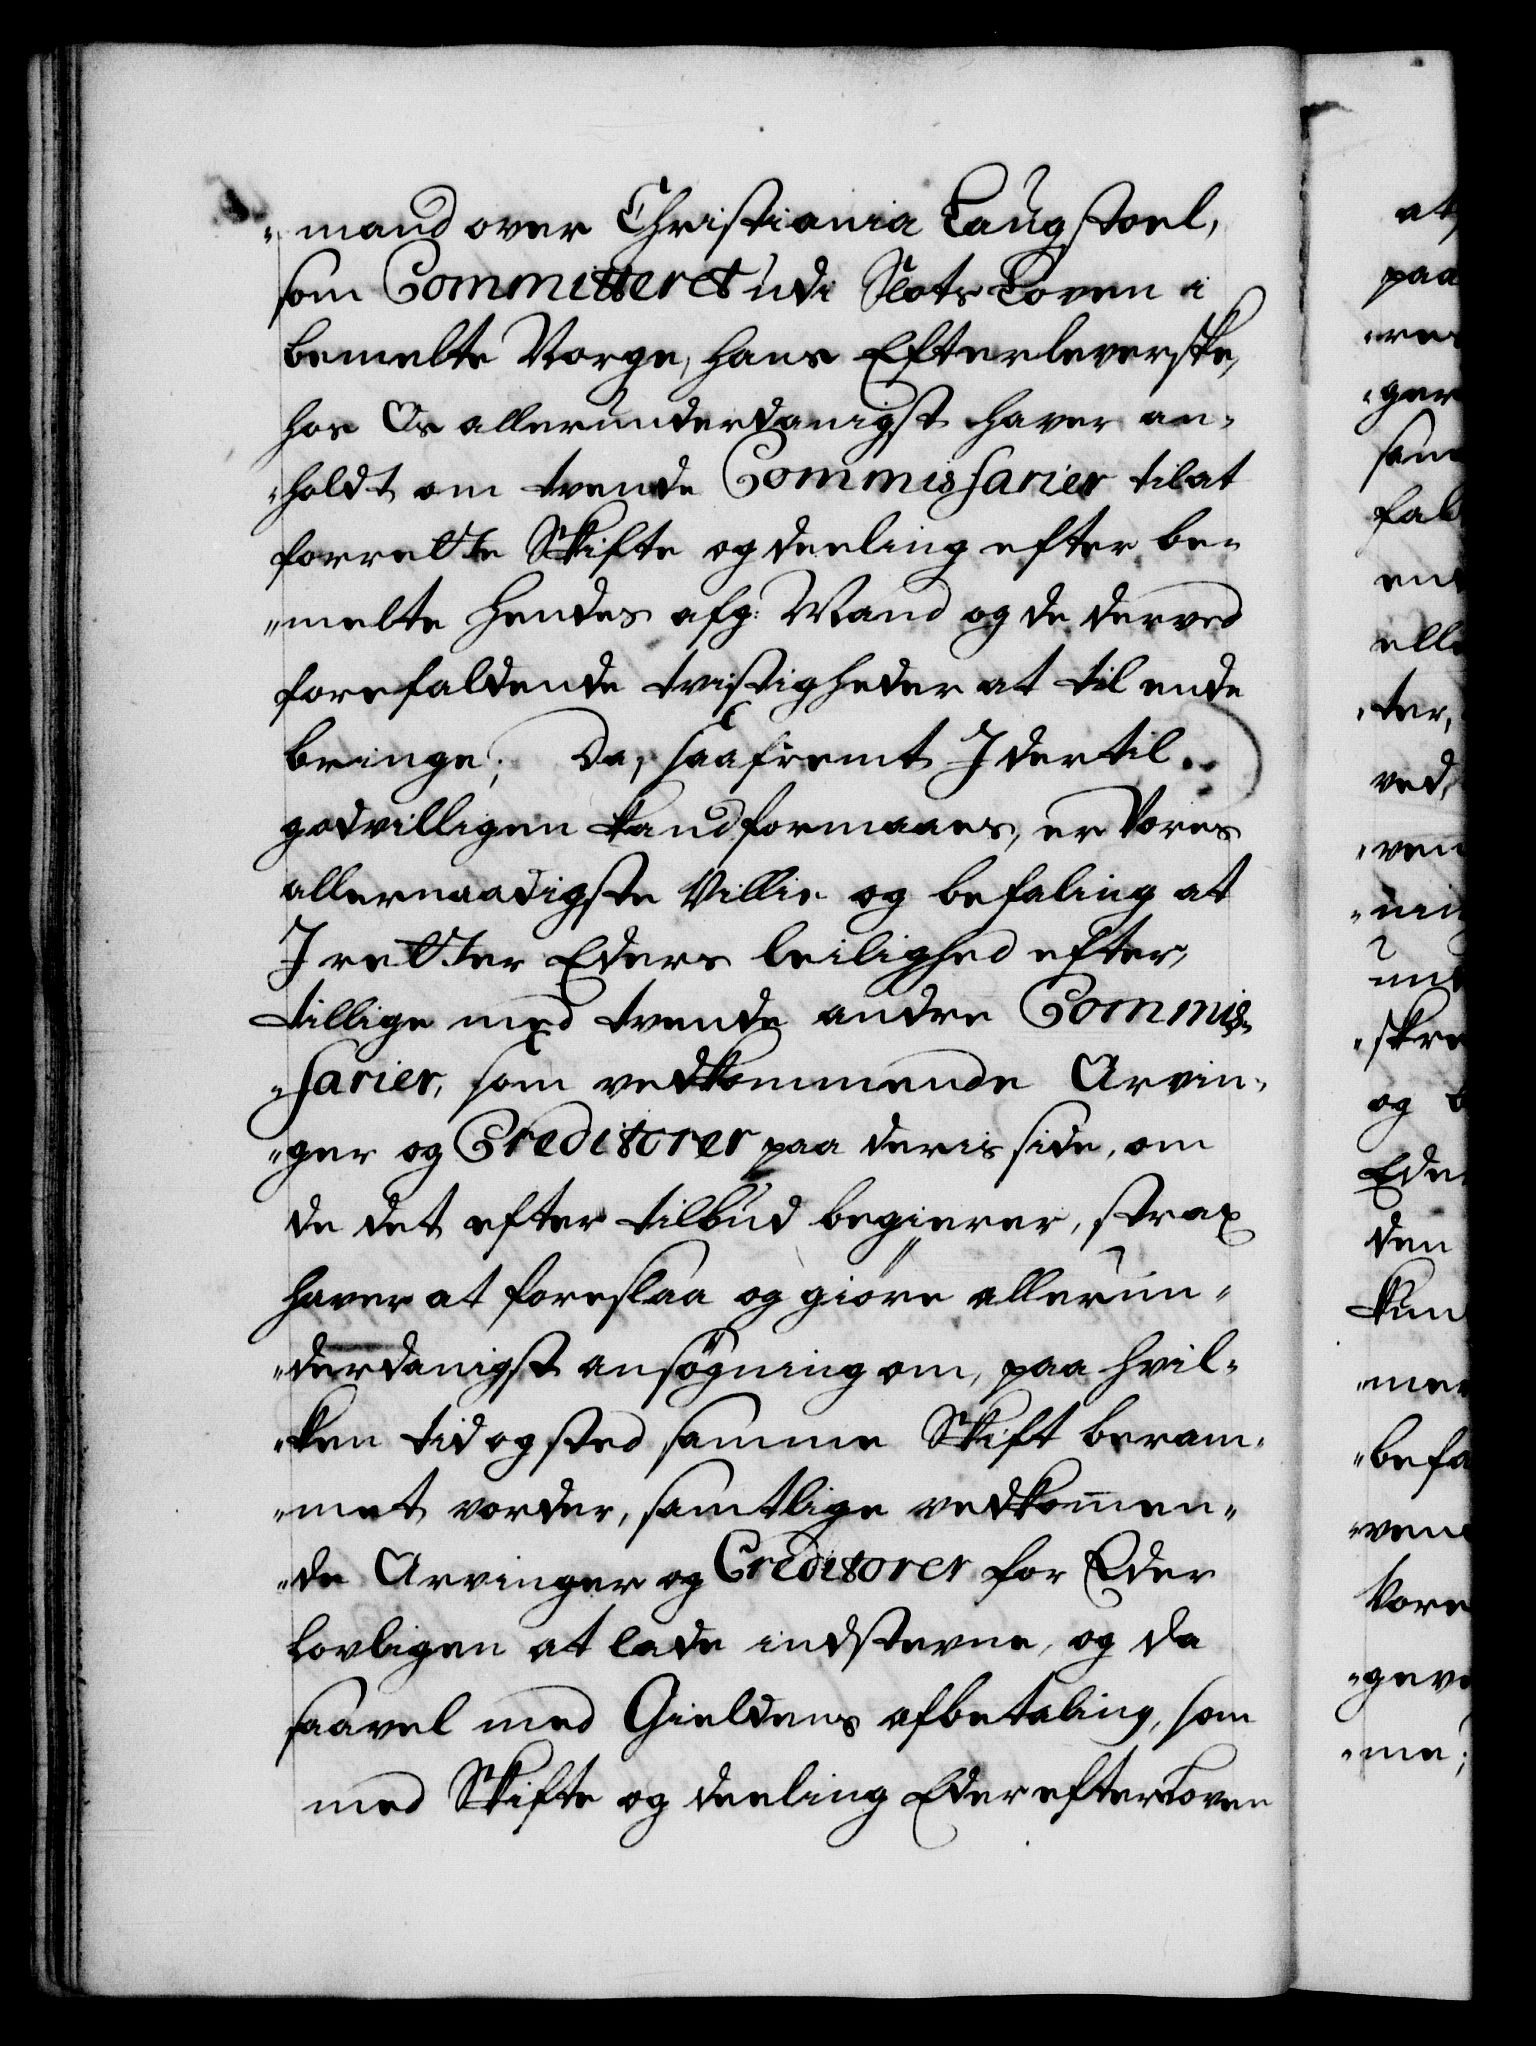 "mand over Christiania Laugstoel,
som Committeret udi Slots Loven i
bemelte Norge, hans Efterleverske,
hos Os allerunderdanigst haver an-
"holdt om tvende Commissarier til at
forrette Skifte og deeling efter be-
"melte hendes afg: Mand og de derved
forefaldende tvistigheder at til ende
bringe; Da, saafremt I dertil
godvilligen kand formaaes, er Vores
allernaadigste Villie og befaling at
I retter Eders leilighed efter,
tillige med tvende andre Commis-
"sarier, som vedkommende Arvin-
"ger og Creditorer paa deris side, om
de det efter tilbud begierer, strax
haver at foreslaa og giöre allerun-
"derdanigst ansögning om, paa hvil-
"ken tid og sted samme Skift beram-
"met vorder, samtlige vedkommen-
"de Arvinger og Creditorer for Eder
lovligen at lade indstevne, og da
saavel med Gieldens afbetaling, som
med Skifte og deeling Eder efter Loven
at
paa
ger
sam
fal
end
elle
ter,
ved,
ven
nin
und
skre
og b
Ede
den
kun
mer
"befa
vend
Vore
"geve
"me;